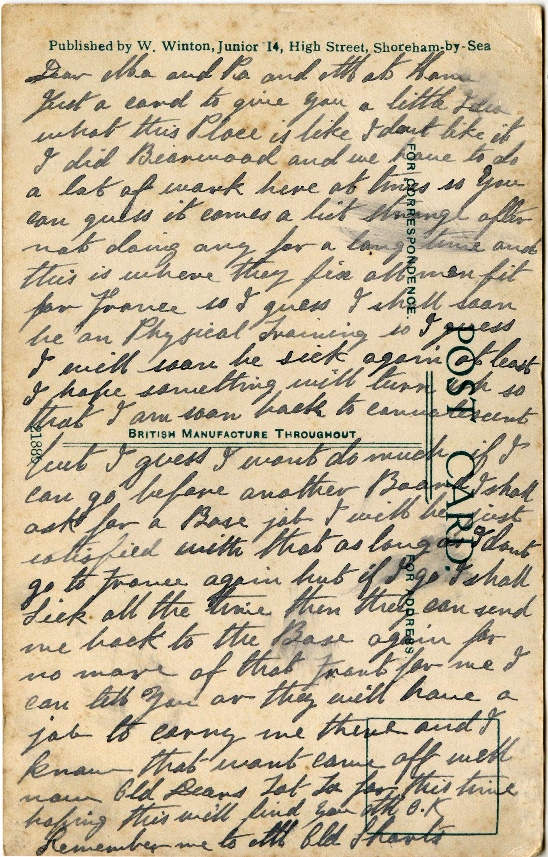 Published by W. Winton, Junior 14, High Street, Shoreham-by-Sea
Dear Ma and Pa and All at Home
Just a card to give you a little Idea
what this Place is like I dont like it
I did Bearwood and we have to do
a lot of work here at times so you
can guess it comes a bit strange after
not doing any for a long time and
this is where they fix all men fit
for France so I guess I shall soon
be on Physical Training so I guess
I will soon be sick again at least
I hope something will turn up so
that I am soon back to convalescent
BRITISH MANUFACTURE THROUGHOUT
but I guess I wont do much if I
can go before another Board I shall
ask for a Base job I will be just
satisfied with that as long as I dont
go to France again but if I go I shall
Sick all the time then they can send
me back to the Base again for
no more of that front for me I
can tell You or they will have a
job to carry me there and I
know that wont come off well
now Old Dears for this time
hoping this will find You all O.K
Remember me to All Old Sports
FOR CORRESPONDENCE.
POST CARD.
FOR ADDRESS